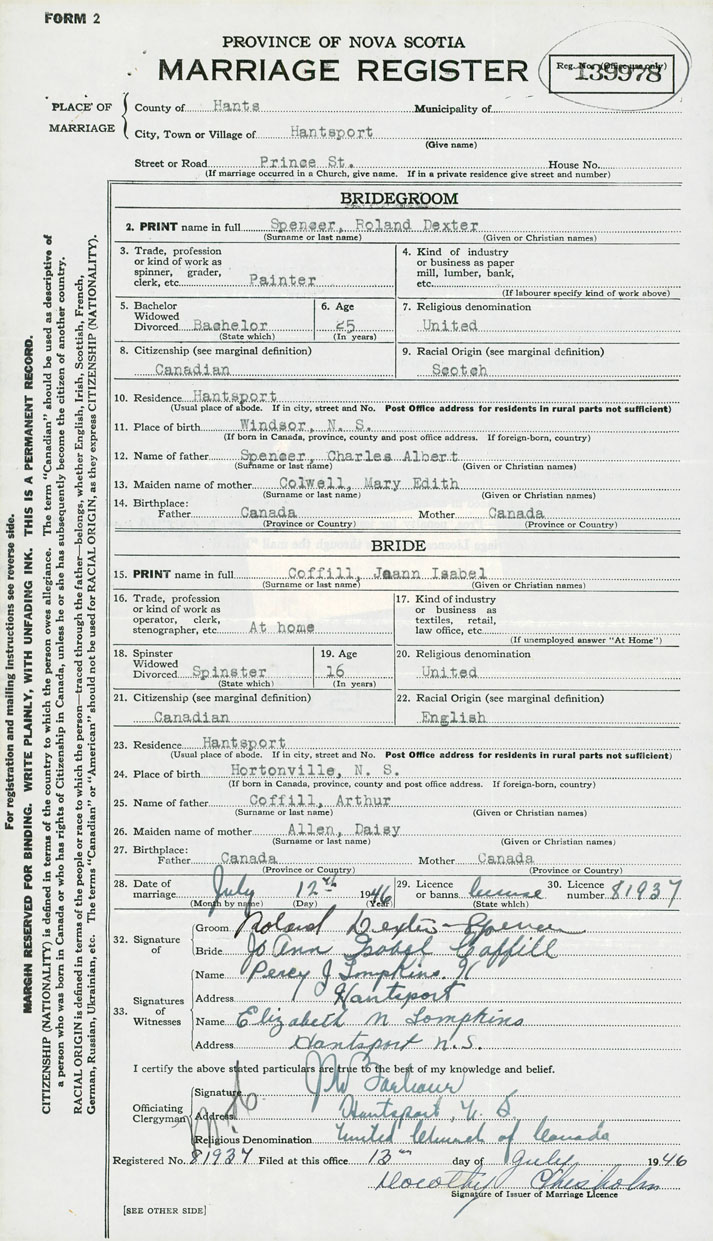 FORM 2
PROVINCE OF NOVA SCOTIA
MARRIAGE REGISTER
Reg. No. (Office use only)
139978
PLACE OF MARRIAGE
County of Hants Municipality of
City, Town or Village of Hantsport
(Give name)
Street or Road Prince St. House No.
(If marriage occurred in a Church, give name. If in a private residence give street and number)
BRIDEGROOM
2. PRINT name in full Spencer, Roland Dexter
(Surname or last name) (Given or Christian names)
3. Trade, profession or kind of work as spinner, grader, clerk, etc. Painter
4. Kind of industry or business as paper mill, lumber, bank, etc.
(If labourer specify kind of work above)
5. Bachelor Widowed Divorced Bachelor
(State which)
6. Age 25
(In years)
7. Religious denomination
United
8. Citizenship (see marginal definition)
Canadian
9. Racial Origin (see marginal definition)
Scotch
10. Residence Hantsport
(Usual place of abode. If in city, street and No. Post Office address for residents in rural parts not sufficient)
11. Place of birth Windsor, N. S.
(If born in Canada, province, county and post office address. If foreign-born, country)
12. Name of father Spencer, Charles Albert
(Surname or last name) (Given or Christian names)
13. Maiden name of mother Colwell, Mary Edith
(Surname or last name) (Given or Christian names)
14. Birthplace:
Father Canada Mother Canada
(Province or Country) (Province or Country)
BRIDE
15. PRINT name in full Coffill, Joann Isabel
(Surname or last name) (Given or Christian names)
16. Trade, profession or kind of work as operator, clerk, stenographer, etc. At home
17. Kind of industry or business as textiles, retail, law office, etc.
(If unemployed answer "At Home")
18. Spinster Widowed Divorced Spinster
(State which)
19. Age 16
(In years)
20. Religious denomination
United
21. Citizenship (see marginal definition)
Canadian
22. Racial Origin (see marginal definition)
English
23. Residence Hantsport
(Usual place of abode. If in city, street and No. Post Office address for residents in rural parts not sufficient)
24. Place of birth Hortonville, N. S.
(If born in Canada, province, county and post office address. If foreign-born, country)
25. Name of father Coffill, Arthur
(Surname or last name) (Given or Christian names)
26. Maiden name of mother Allen, Daisy
(Surname or last name) (Given or Christian names)
27. Birthplace:
Father Canada Mother Canada
(Province or Country) (Province or Country)
28. Date of marriage July 12th 1946
(Month by name) (Day) (Year)
29. Licence or banns license
(State which)
30. Licence number 81937
32. Signature of
Groom Roland Dexter Spencer
Bride Jo Ann Isobel Coffill
33. Signatures of Witnesses
Name Percy J Tompkins
Address Hantsport
Name Elizabeth N Tompkins
Address Hantsport N.S.
I certify the above stated particulars are true to the best of my knowledge and belief.
Officiating Clergyman
Signature J W Barbour
Address Hantsport, N. S
Religious Denomination United Church of Canada
Registered No. 81937 Filed at this office 13th day of July 1946
Dorothy Chisholm
Signature of Issuer of Marriage Licence
[SEE OTHER SIDE]
For registration and mailing instructions see reverse side.
MARGIN RESERVED FOR BINDING. WRITE PLAINLY, WITH UNFADING INK. THIS IS A PERMANENT RECORD.
CITIZENSHIP (NATIONALITY) is defined in terms of the country to which the person owes allegiance. The term "Canadian" should be used as descriptive of
a person who was born in Canada or who has rights of Citizenship in Canada, unless he or she has subsequently become the citizen of another country.
RACIAL ORIGIN is defined in terms of the people or race to which the person—traced through the father—belongs, whether English, Irish, Scottish, French,
German, Russian, Ukrainian, etc. The terms "Canadian" or "American" should not be used for RACIAL ORIGIN, as they express CITIZENSHIP (NATIONALITY).